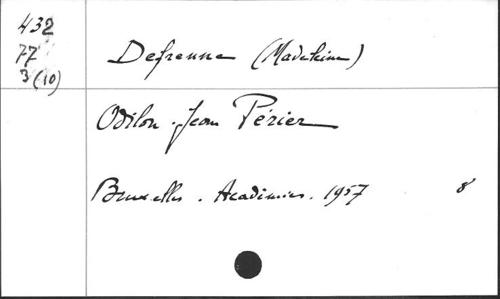 432
77
3 (10)
Defrenne (Madeleine)
Odilon-Jean Périer
Bruxelles. Académies. 1957 8°